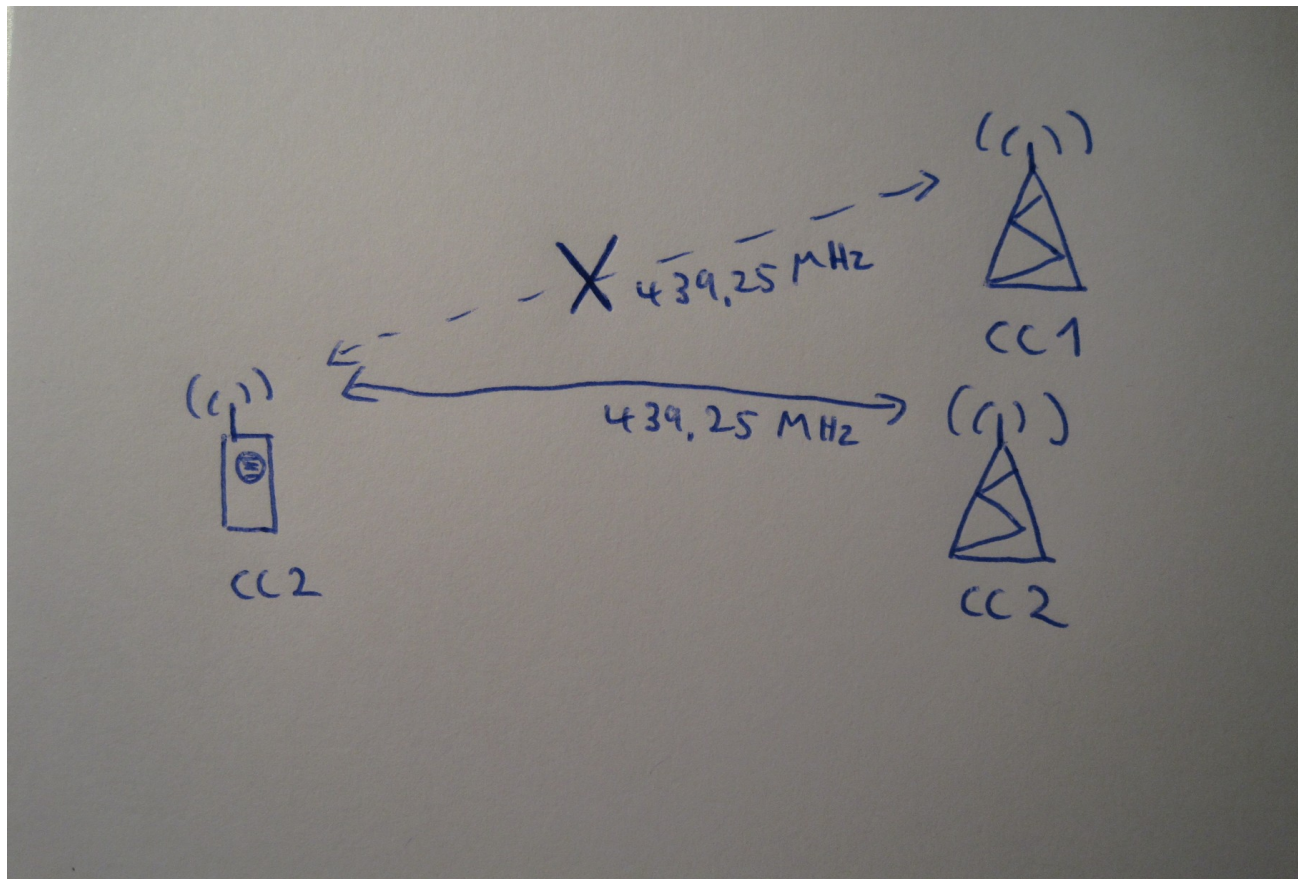 439.25 MHz
CC1
439.25 MHz
CC2
CC2